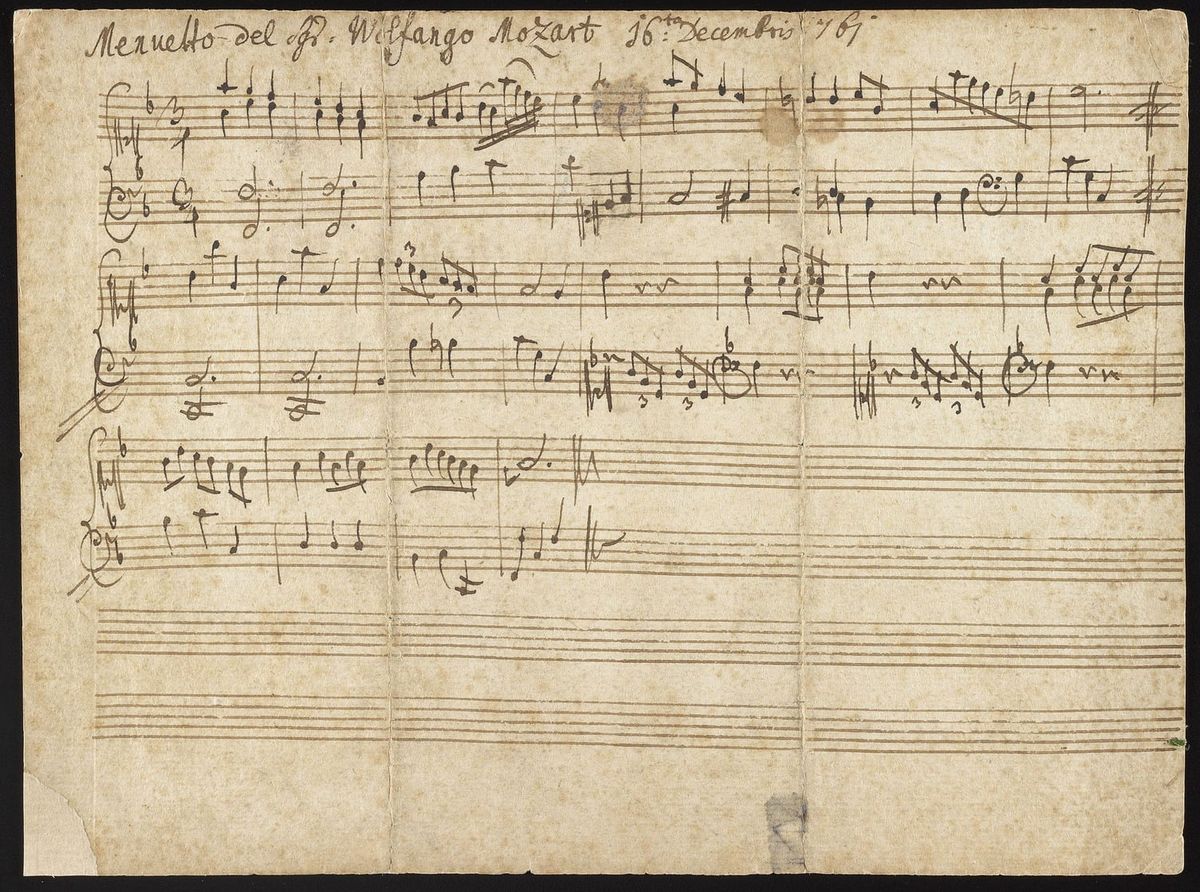 Menuetto del Sgr. Wolfango Mozart 16ta Decembris 761
3
3
3
3
3
3
3
3